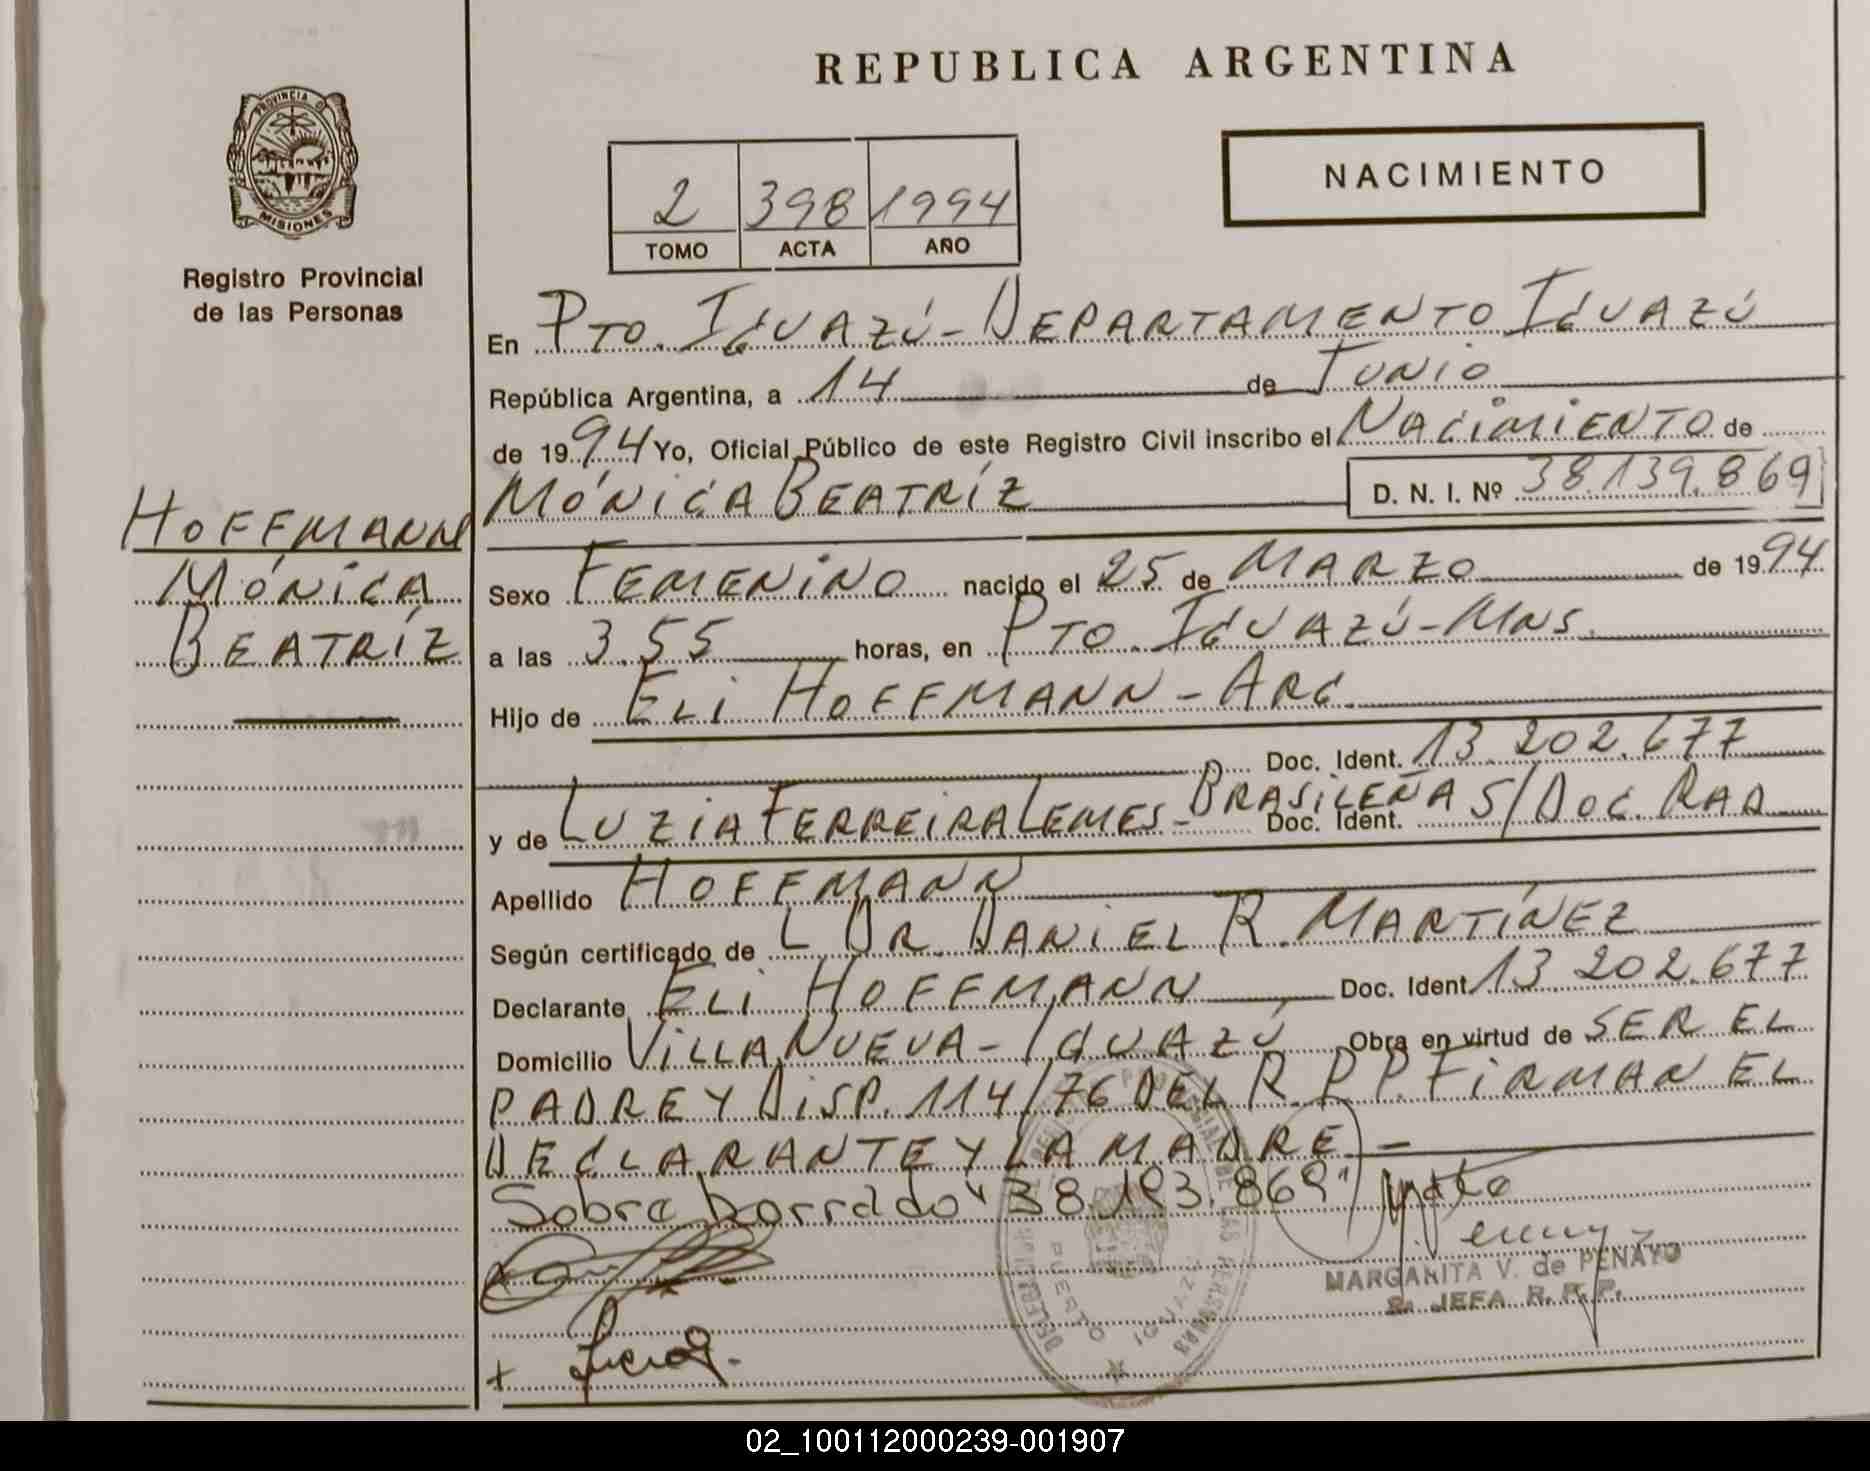 REPUBLICA ARGENTINA
PROVINCIA D
MISIONES
Registro Provincial
de las Personas
NACIMIENTO
2 398 1994
TOMO ACTA AÑO
En PTO. IGUAZÚ - DEPARTAMENTO IGUAZÚ
República Argentina, a 14 de JUNIO
de 1994 Yo, Oficial Público de este Registro Civil inscribo el NACIMIENTO de
MÓNICA BEATRÍZ D. N. I. Nº 38.139.869
HOFFMANN
MÓNICA
BEATRÍZ
Sexo FEMENINO nacido el 25 de MARZO de 1994
a las 3.55 horas, en PTO. IGUAZÚ - MNS.
Hijo de ELI HOFFMANN - ARG.
Doc. Ident. 13.202.677
y de LUZIA FERREIRA LEMES - BRASILEÑA Doc. Ident. S/DOC. RAD
Apellido HOFFMANN
Según certificado de L DR. DANIEL R. MARTÍNEZ
Declarante ELI HOFFMANN Doc. Ident. 13.202.677
Domicilio VILLA NUEVA - IGUAZÚ Obra en virtud de SER EL
PADRE Y DISP. 114/76 DEL R. P. P. FIRMAN EL
DECLARANTE Y LA MADRE -
Sobre borrado "38.193.869"
MARGARITA V. de PENAYO
JEFA R. P. P.
DE LAS PERSONAS
PUERTO IGUAZU
+
02_100112000239-001907